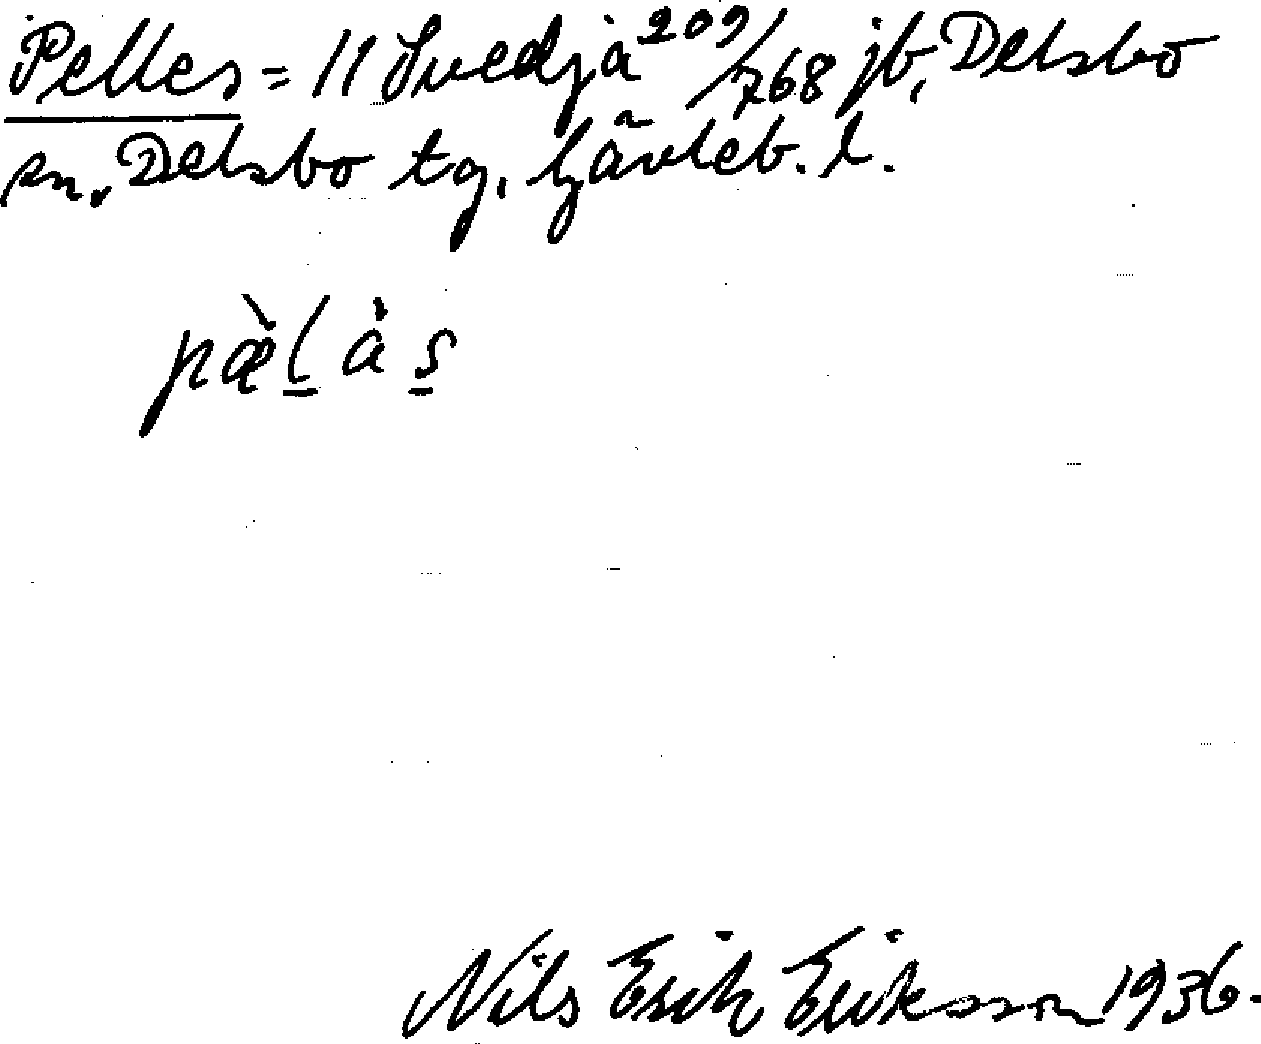 Pelles = 11 Svedja 209/768 jb, Delsbo
sn. Delsbo tg. Gävleb. l.
pæ̀l̲ às̲
Nils Erik Eriksson 1936.